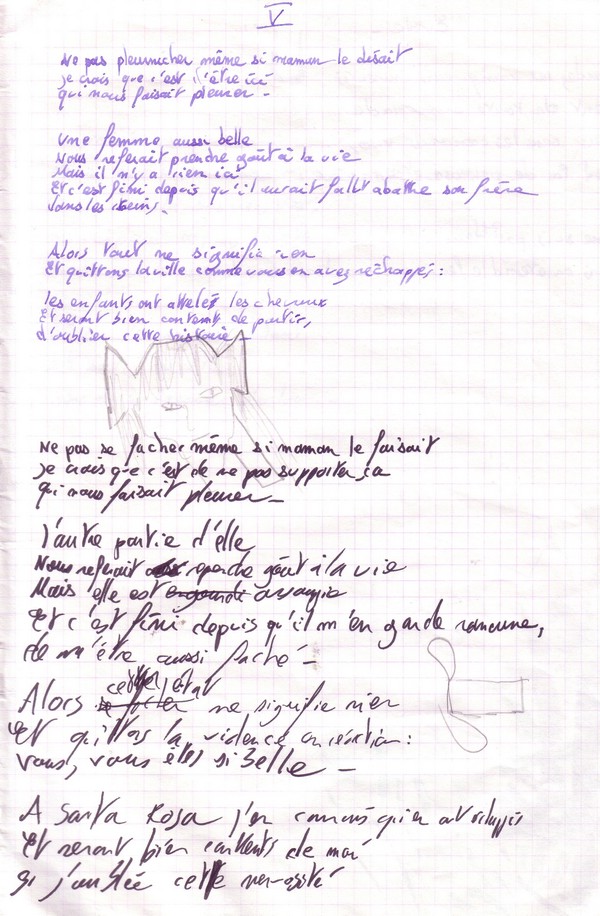 V
Ne pas pleurnicher même si maman le disait
je crois que c'est d'être ici
qui nous faisait pleurer -
Une femme aussi belle
Nous referait prendre goût à la vie
Mais il n'y a rien ici
Et c'est fini depuis qu'il aurait fallu abattre son frère
dans les
Alors tout ne signifie rien
Et quittons la ville comme vous en avez réchappés :
les enfants ont attelés les chevaux
Et seront bien contents de partir,
d'oublier cette histoire -
Ne pas se facher même si maman le faisait
je crois que c'est de ne pas supporter ça
qui nous faisait pleurer -
l'autre partie d'elle
Nous referait reprendre goût à la vie
Mais elle est
Et c'est fini depuis qu'il m'en garde rancune,
de m'être aussi faché -
Alors cet état ne signifie rien
Et quittons la violence en réaction :
vous, vous êtes si belle -
A Santa Rosa j'en connais qui en ont
Et seront bien contents de moi
Si j'oubliée cette